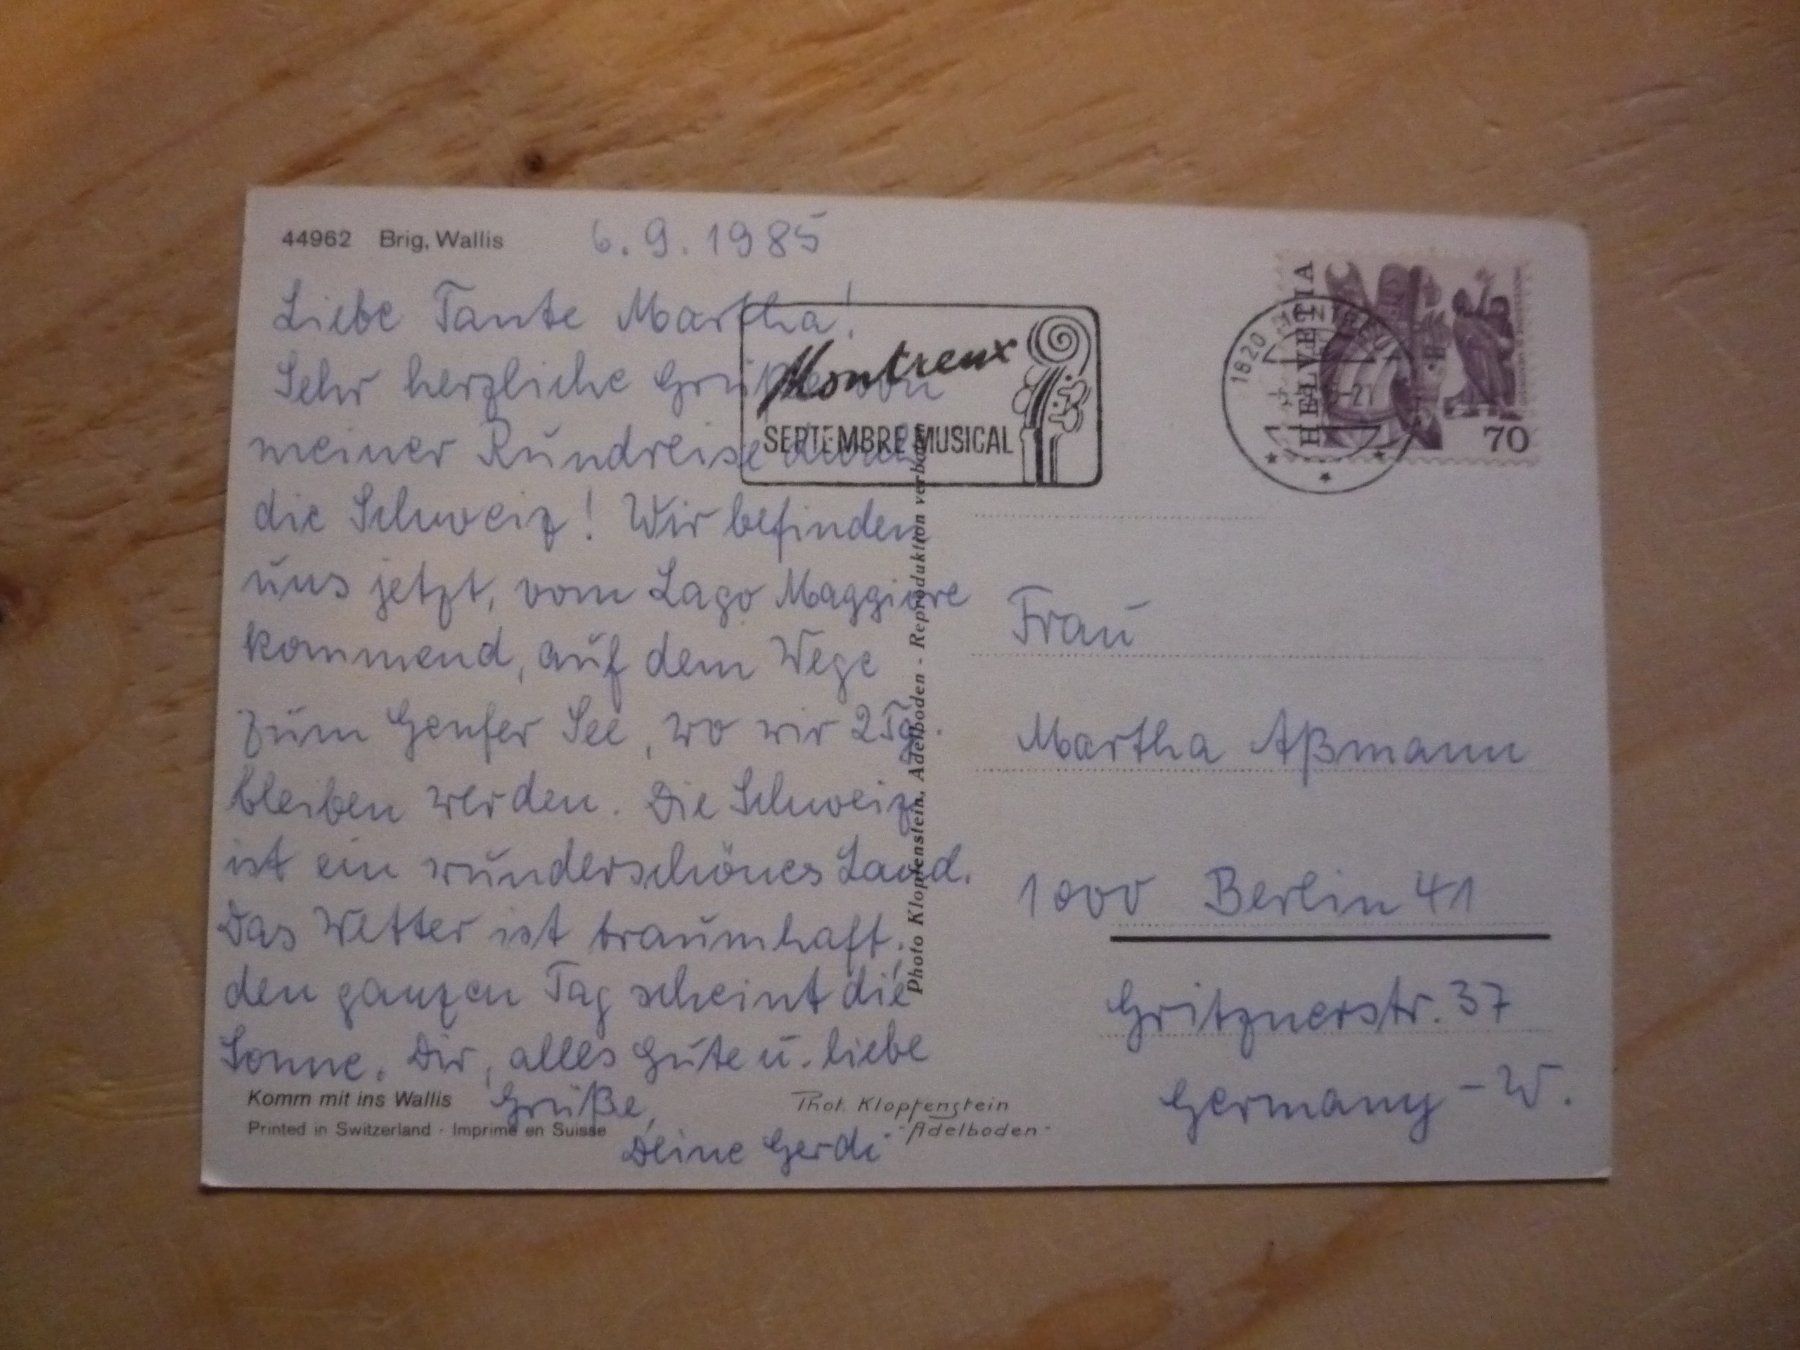 44962 Brig, Wallis
6.9.1985
Liebe Tante Martha!
Sehr herzliche Grüße von
meiner Rundreise durch
die Schweiz! Wir befinden
uns jetzt, vom Lago Maggiore
kommend, auf dem Wege
zum Genfer See, wo wir 2 Tg.
bleiben werden. Die Schweiz
ist ein wunderschönes Land.
Das Wetter ist traumhaft,
den ganzen Tag scheint die
Sonne. Dir, alles Gute u. liebe
Grüße,
Deine Gerdi
Komm mit ins Wallis
Printed in Switzerland · Imprimé en Suisse
Phot. Klopfenstein
-Adelboden-
Photo Klopfenstein, Adelboden - Reproduktion verboten
Montreux
SEPTEMBRE MUSICAL
1820 MONTREUX
HELVETIA
70
Frau
Martha Aßmann
1000 Berlin 41
Gritznerstr. 37
Germany - W.